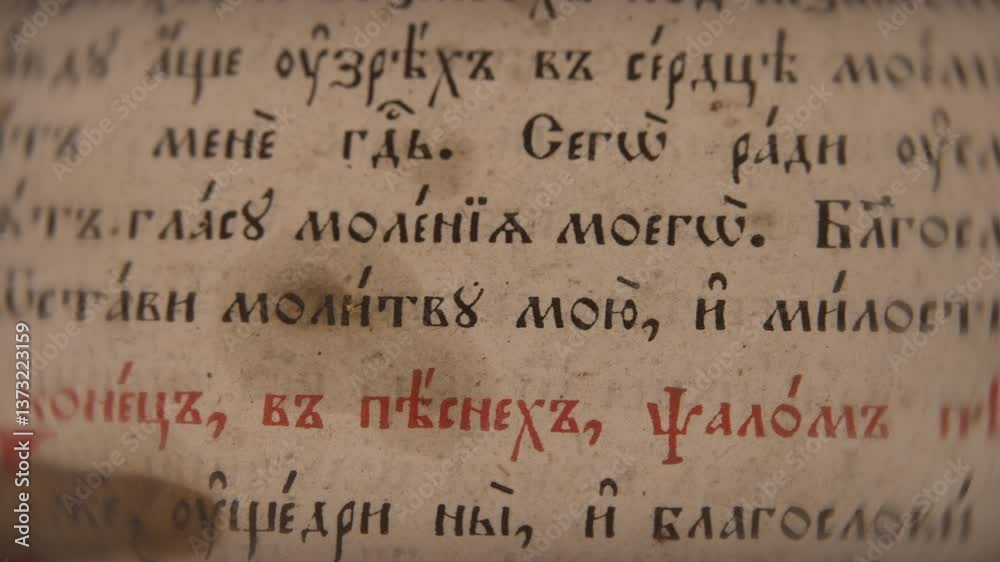 аще оу҆зрѣ́хъ въ се́рдцѣ мое́м
менѐ гдⷭ҇ь. Сегѡ̀ ра́ди оу҆сл
гла́су моле́нїѧ моегѡ̀. Бл҃госл
ѿста́ви моли́тву мою̀, и҆ ми́лость
коне́цъ, въ пѣ́снехъ, ѱало́мъ пѣ
оу҆ще́дри ны̀, и҆ благослови́